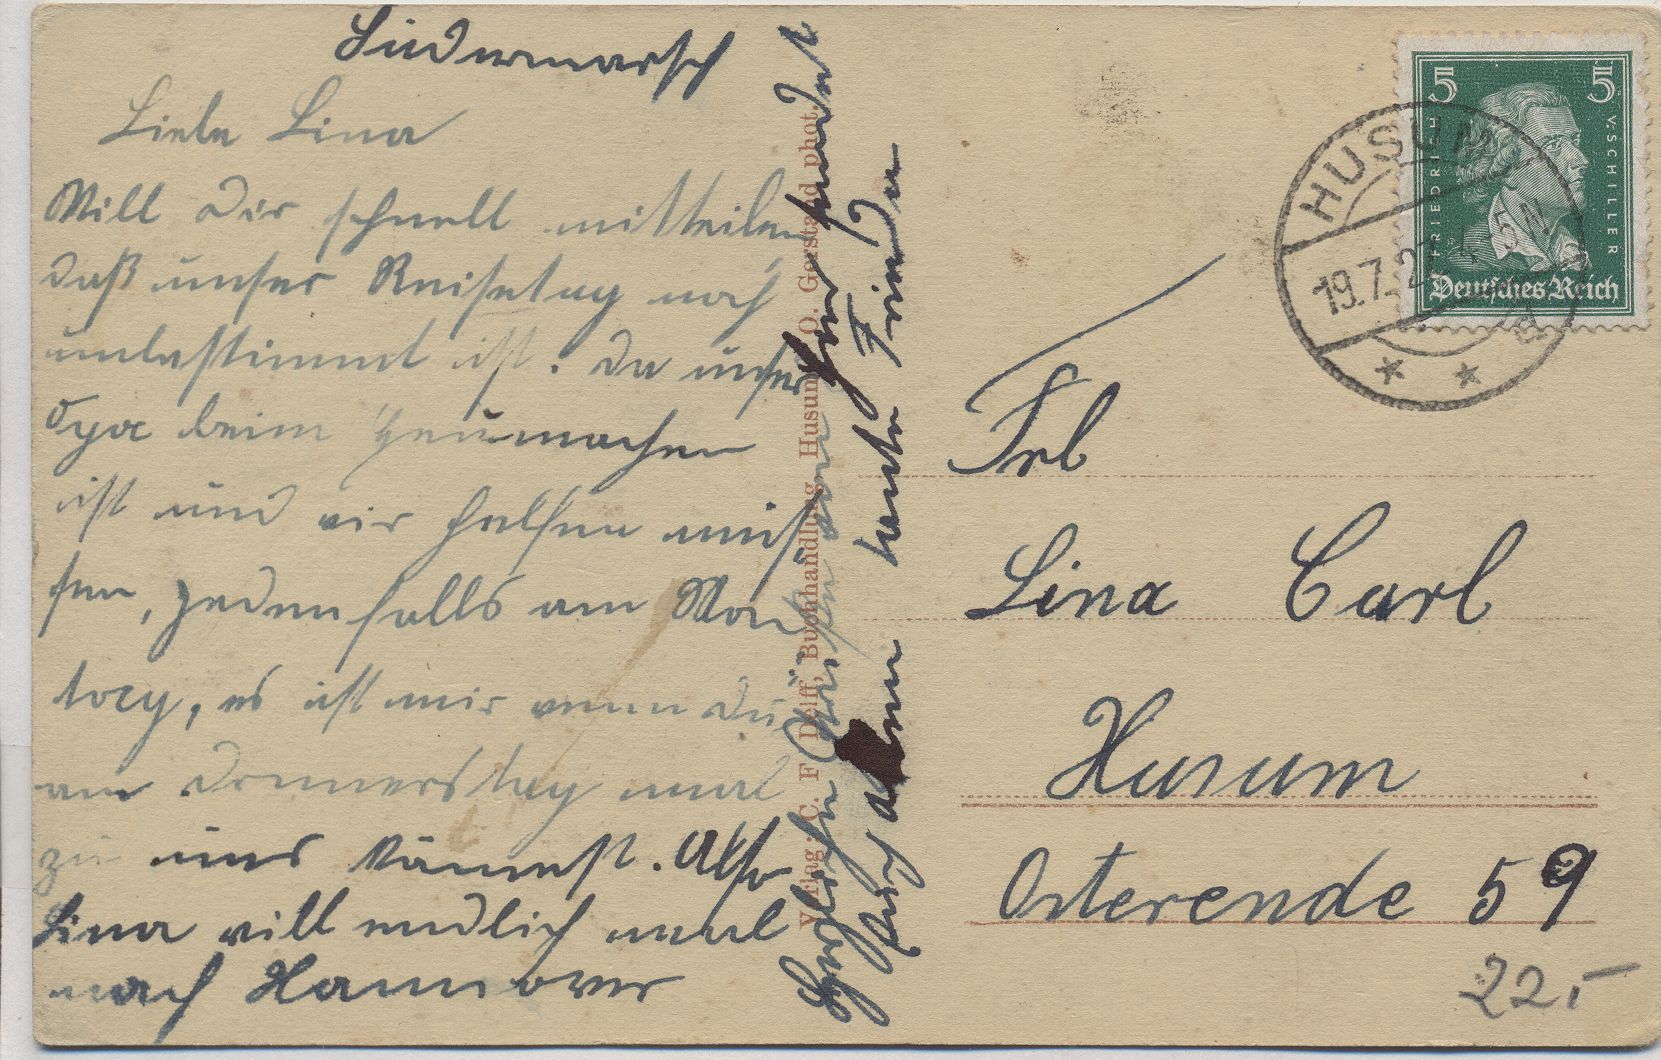 Südermarsch
Liebe Lina
Will Dir schnell mitteilen
daß unser Reisetag noch
unbestimmt ist. Da unser
Opa beim Heumachen
ist und wir helfen müs-
sen, jedenfalls am Mon
tag, es ist mir wenn Du
am Donnerstag mal
zu uns kämest. Also
Lina will endlich mal
nach Hannover
Herzliche Grüße von hier sendet
Anna Deine Freundin
Verlag: C. F. Delff, Buchhandlung, Husum. O. Gerstand phot.
5 5
FRIEDRICH V. SCHILLER
Deutsches Reich
HUSUM
19.7.27. 4-5 N
Frl
Lina Carl
Husum
Osterende 59
22,-